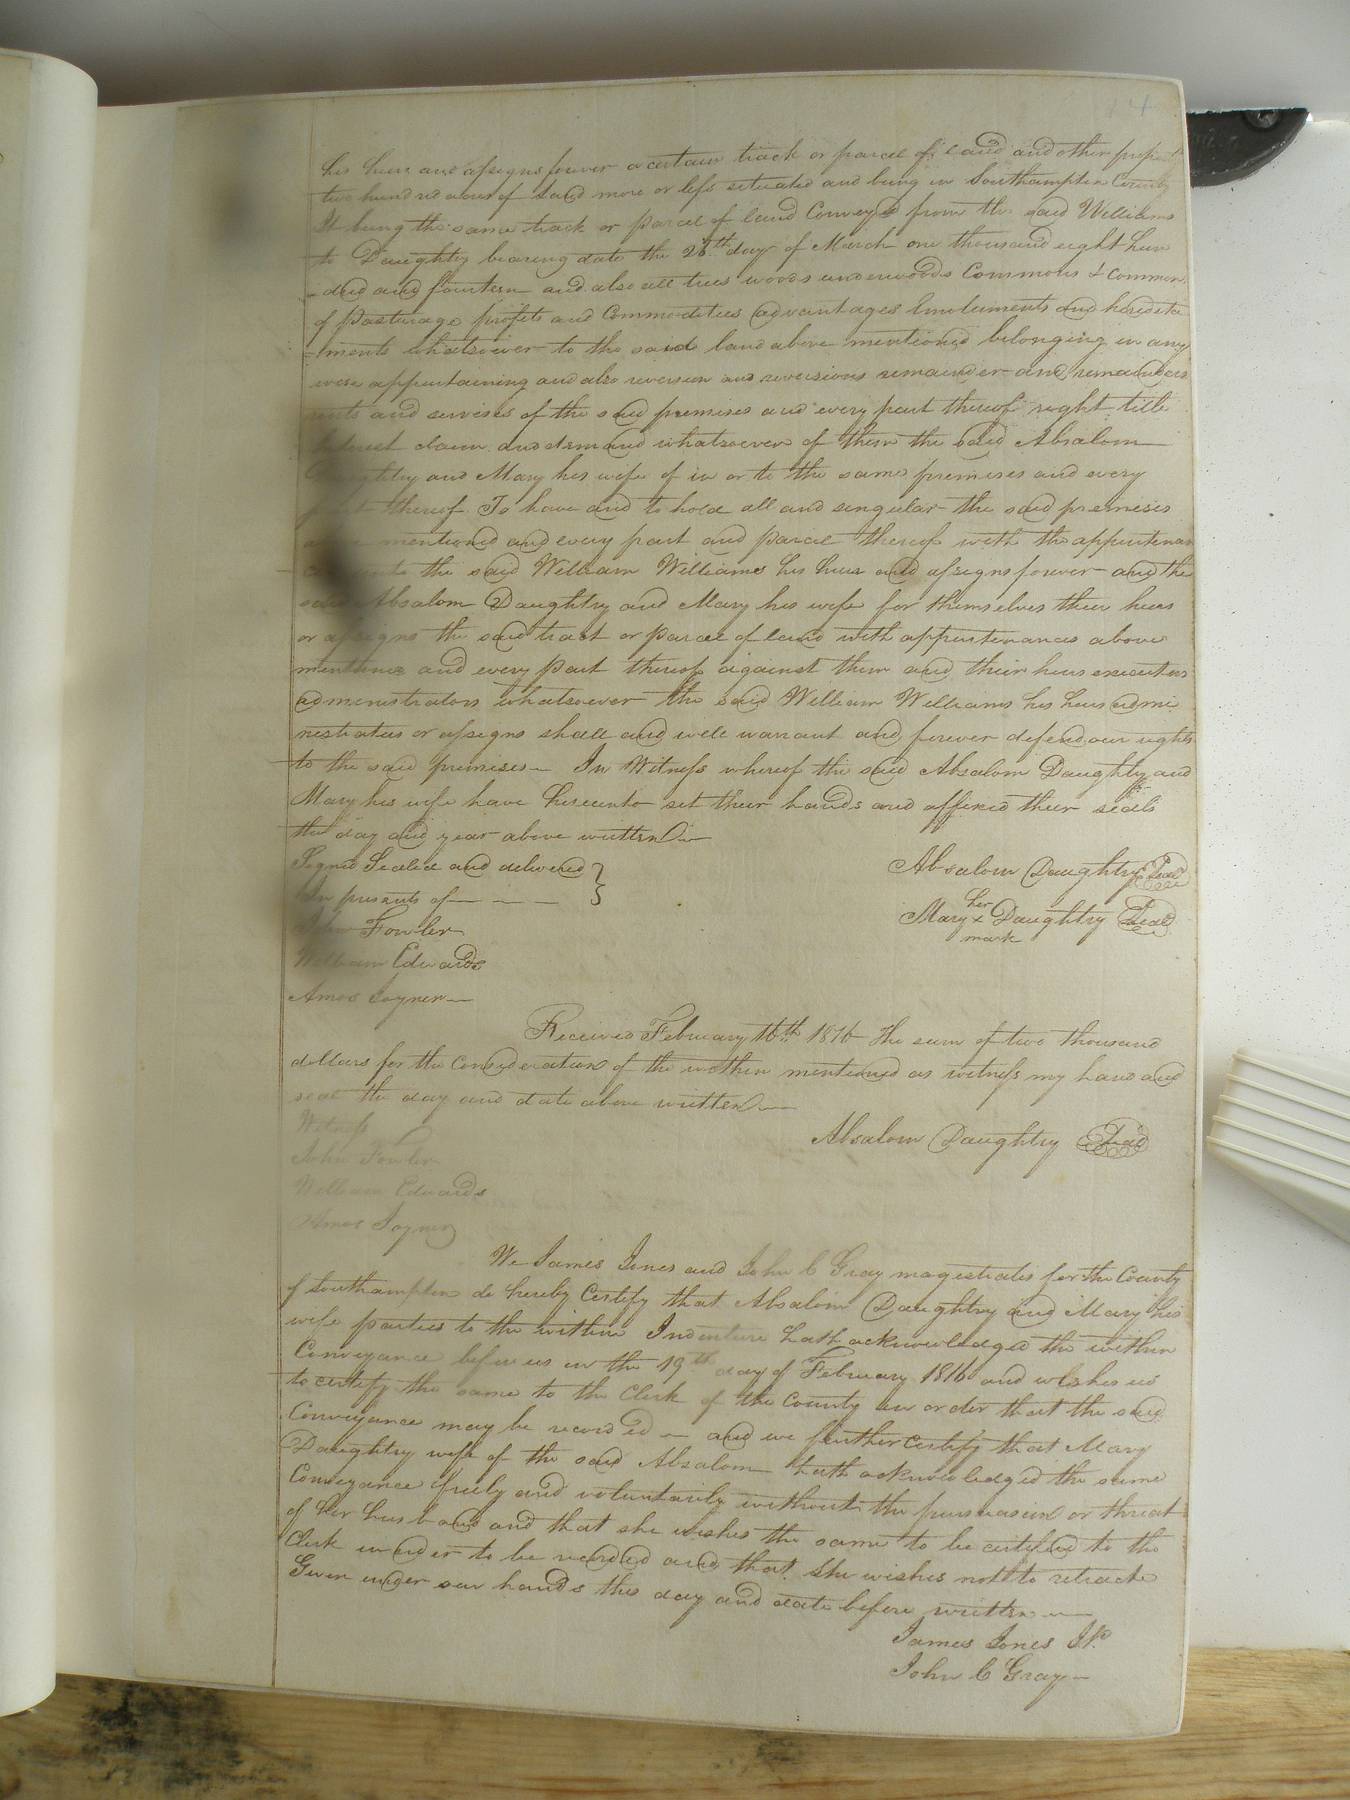 14
his heirs and assigns forever a certain track or parcel of land and other
two hundred acres of Land more or less situated and being in Southampton County
It being the same track or parcel of land Conveyd from the said Williams
to Daughtry bearing date the 28th day of March one thousand eight hun
-dred and fourteen and also all trees woods underwoods Commons & common
of pasturage profits and Commodities advantages Emoluments and heredita
-ments whatsoever to the said land above mentioned belonging in any
wise appurtaining and also reversion and reversions remainder and remainders
rents and servises of the said premises and every part thereof right title
claim and demand whatsoever of them the said Absalom
Daughtry and Mary his wife of in or to the same premises and every
part thereof To have and to hold all and singular the said premises
mentioned and every part and parcel thereof with the appurtenan
the said William Williams his heirs and assigns forever and the
said Absalom Daughtry and Mary his wife for themselves their heirs
or assigns the said tract or parcel of land with appurtenances above
mentiond and every part thereof against them and their heirs executors
administrators whatsoever the said William Williams his heirs admi
nistrators or assigns shall and will warrant and forever defend our rights
to the said premises — In Witness whereof the said Absalom Daughtry and
Mary his wife have hereunto set their hands and affixed their seals
the day and year above written —
Signd Sealed and delivered }
In presents of — — — }
Absalom Daughtry Seal
her
Mary x Daughtry Seal
mark
John Fowler
William Edwards
Amos Joyner —
Received February 16th 1816 The sum of two thousand
dollars for the Consideration of the within mentioned as witness my hand and
seal the day and date above written —
Absalom Daughtry Seal
Witness
John Fowler
William Edwards
Amos Joyner
We James Jones and John C Gray magestrates for the County
of Southampton do hereby Certify that Absalom Daughtry and Mary his
wife parties to the within Indenture hath acknowledged the within
Conveyance before us in the 19th day of February 1816 and wishes us
to certify the same to the Clerk of the County in order that the said
Conveyance may be recorded — and we further certify that Mary
Daughtry wife of the said Absalom hath acknowledged the same
Conveyance freely and voluntarily without the pursuasion or threat
of her husband and that she wishes the same to be certified to the
Clerk in order to be recorded and that she wishes not to retract
Given under our hands this day and date before written —
James Jones J.P.
John C Gray —